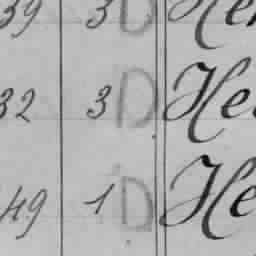 39 3 D
32 3 D He
49 1 D He